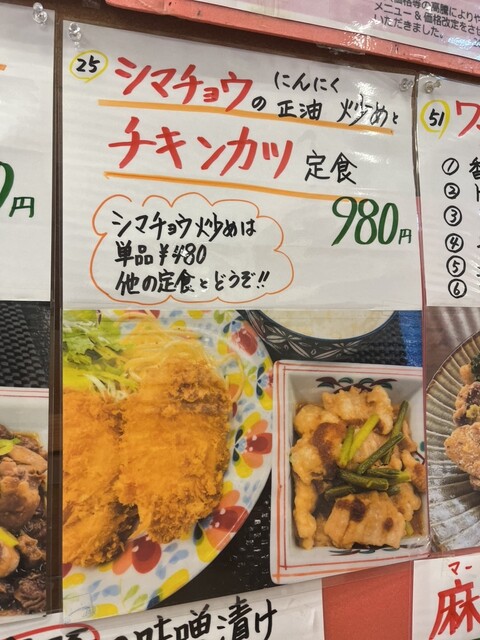 格等の高騰によりや
メニュー & 価格改定をさせ
いただきました。
25
シマチョウの にんにく正油 炒めと
チキンカツ 定食
980円
シマチョウ炒めは
単品¥480
他の定食とどうぞ!!
円
51
ワ
①
②
③
④
⑤
⑥
の味噌漬け
マー
麻